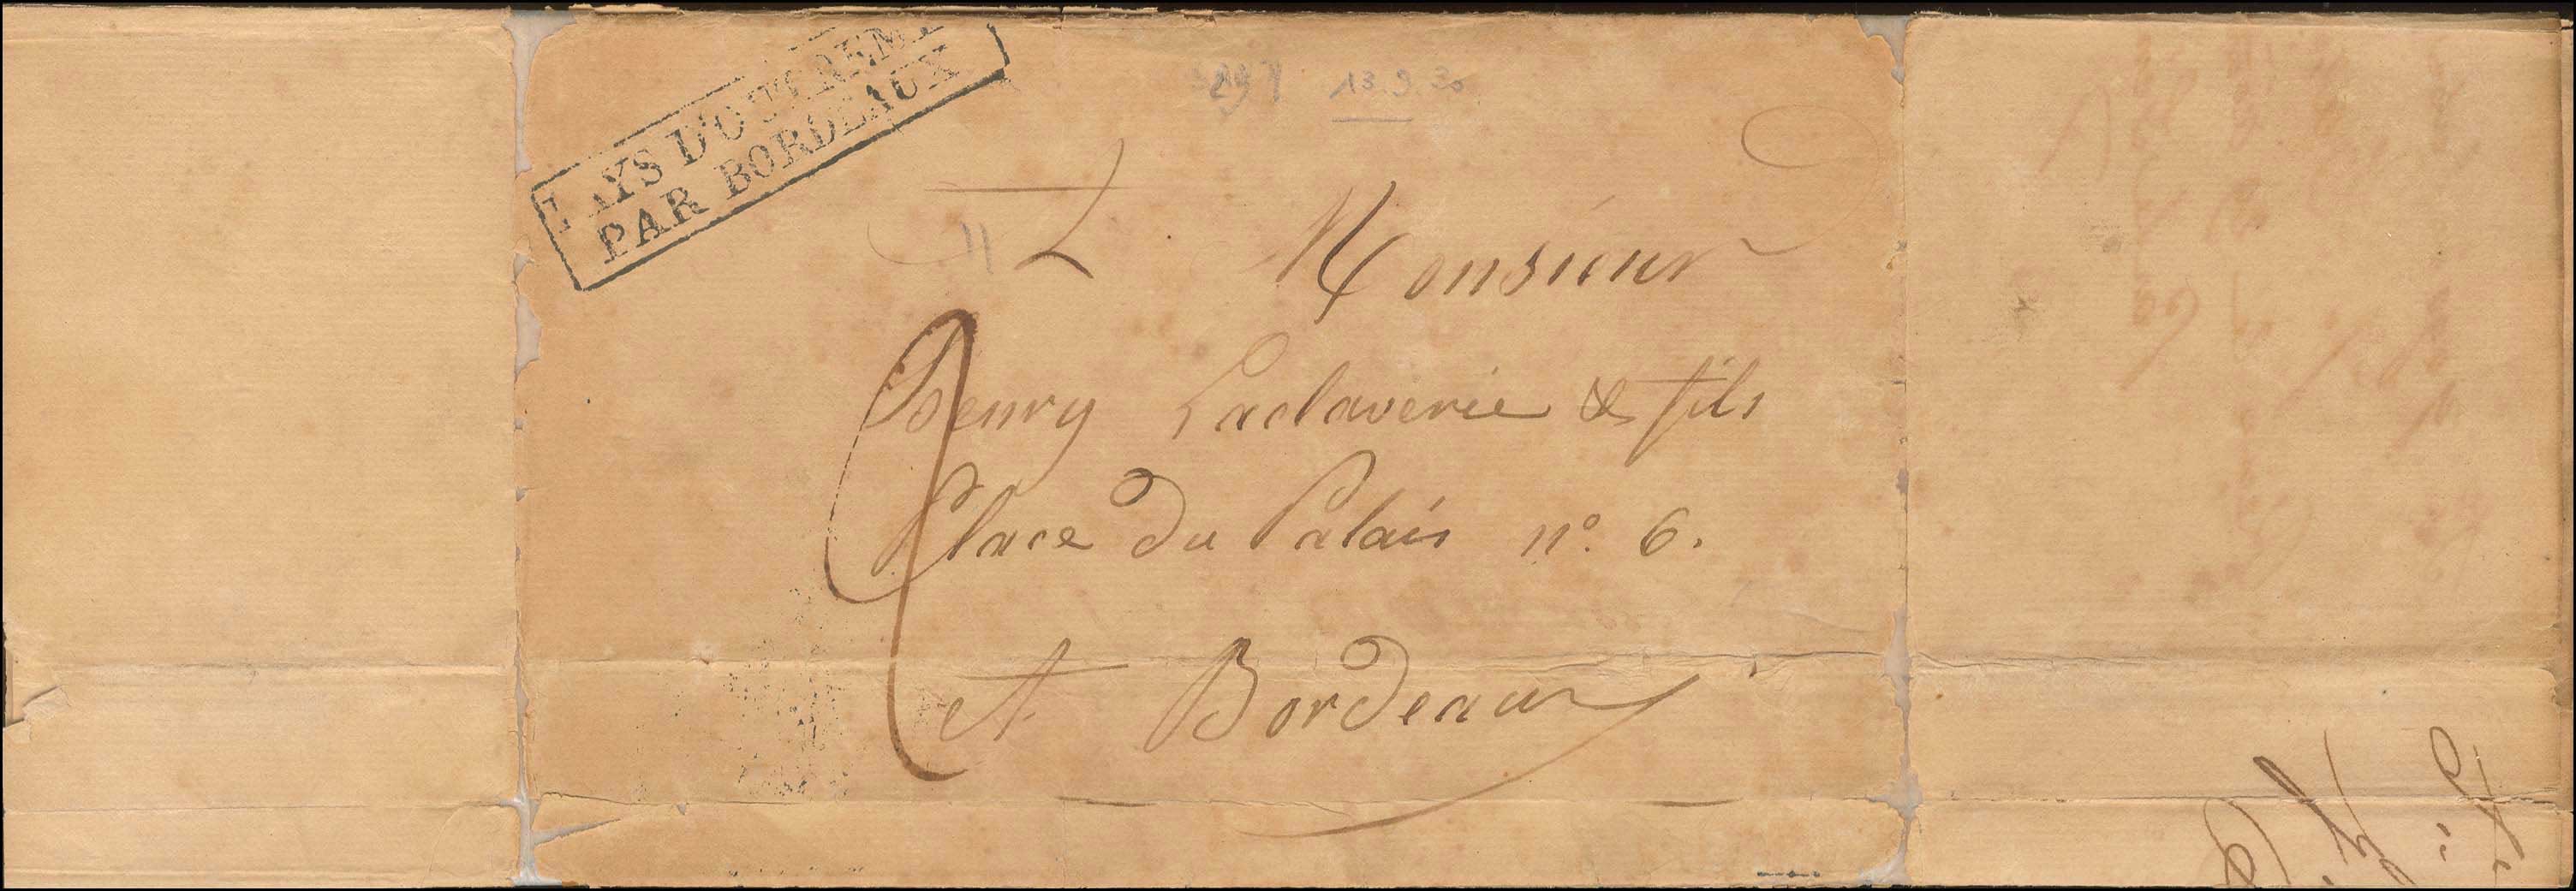 PAYS D'OUTREM
PAR BORDEAUX
13.9.30
A Monsieur
Henry Laclaverie & fils
Place du Palais n° 6.
A Bordeaux